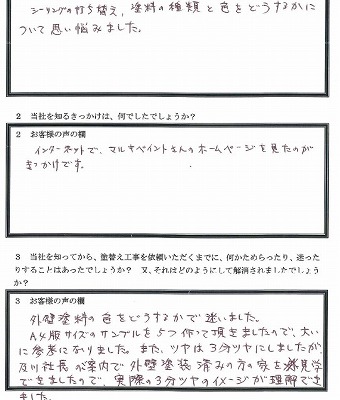 シーリングの打ち替え、塗料の種類と色をどうするかに
ついて思い悩みました。
2 当社を知るきっかけは、何でしたでしょうか?
2 お客様の声の欄
インターネットで、マルキペイントさんのホームページを見たのが
きっかけです。
3 当社を知ってから、塗替え工事を依頼いただくまでに、何かためらったり、迷った
りすることはあったでしょうか? 又、それはどのようにして解消されましたでしょう
か?
3 お客様の声の欄
外壁塗料の色をどうするかで迷いました。
A4版サイズのサンプルを5つ作って頂きましたので、大い
に参考になりました。また、ツヤは3分ツヤにしましたが、
及川社長の案内で外壁塗装済みの方の家を見学
できましたので、実際の3分ツヤのイメージが理解でき
ました。